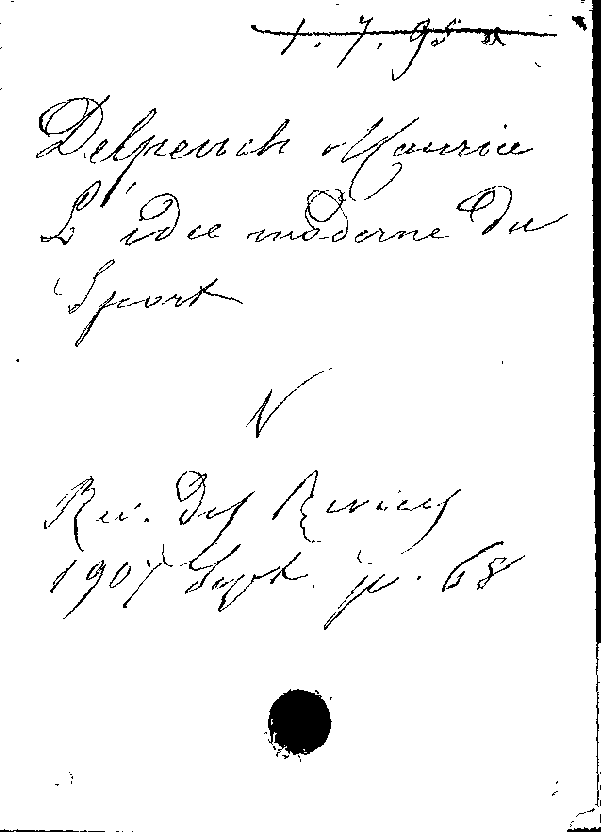 1. 7. 95 a
Delpeuch Maurice
L'idee moderne du
Sport
N
Rev. des Revues
1907 Sept. p. 68